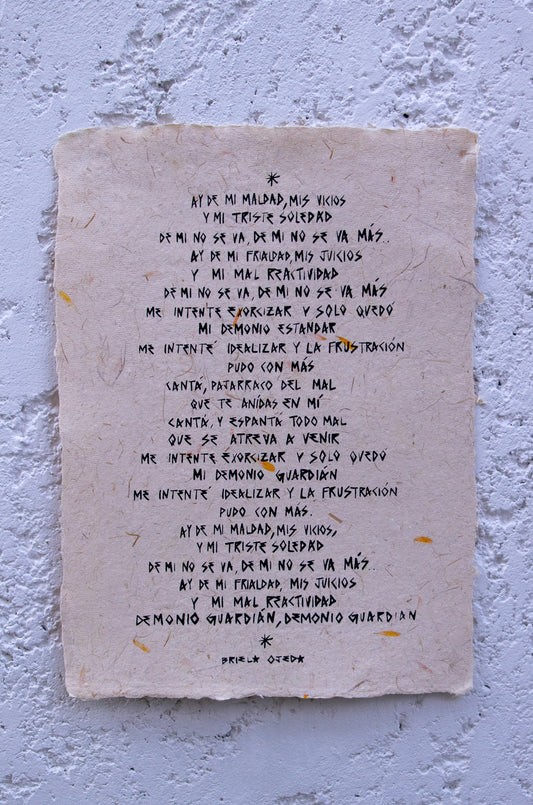 AY DE MI MALDAD, MIS VICIOS
Y MI TRISTE SOLEDAD
DE MI NO SE VA, DE MI NO SE VA MÁS..
AY DE MI FRIALDAD, MIS JUICIOS
Y MI MAL REACTIVIDAD
DE MI NO SE VA, DE MI NO SE VA MÁS
ME INTENTE EXORCIZAR Y SOLO QUEDÓ
MI DEMONIO ESTANDAR
ME INTENTE´ IDEALIZAR Y LA FRUSTRACIÓN
PUDO CON MÁS
CANTÁ, PAJARRACO DEL MAL
QUE TE ANÍDAS EN MÍ
CANTÁ, Y ESPANTÁ TODO MAL
QUE SE ATREVA A VENIR
ME INTENTE EXORCIZAR Y SOLO QUEDÓ
MI DEMONIO GUARDIÁN
ME INTENTE´ IDEALIZAR Y LA FRUSTRACIÓN
PUDO CON MÁS.
AY DE MI MALDAD, MIS VICIOS,
Y MI TRISTE SOLEDAD
DE MI NO SE VA, DE MI NO SE VA MÁS..
AY DE MI FRIALDAD, MIS JUICIOS
Y MI MAL REACTIVIDAD
DEMONIO GUARDIÁN, DEMONIO GUARDIAN
BRIELA OJEDA